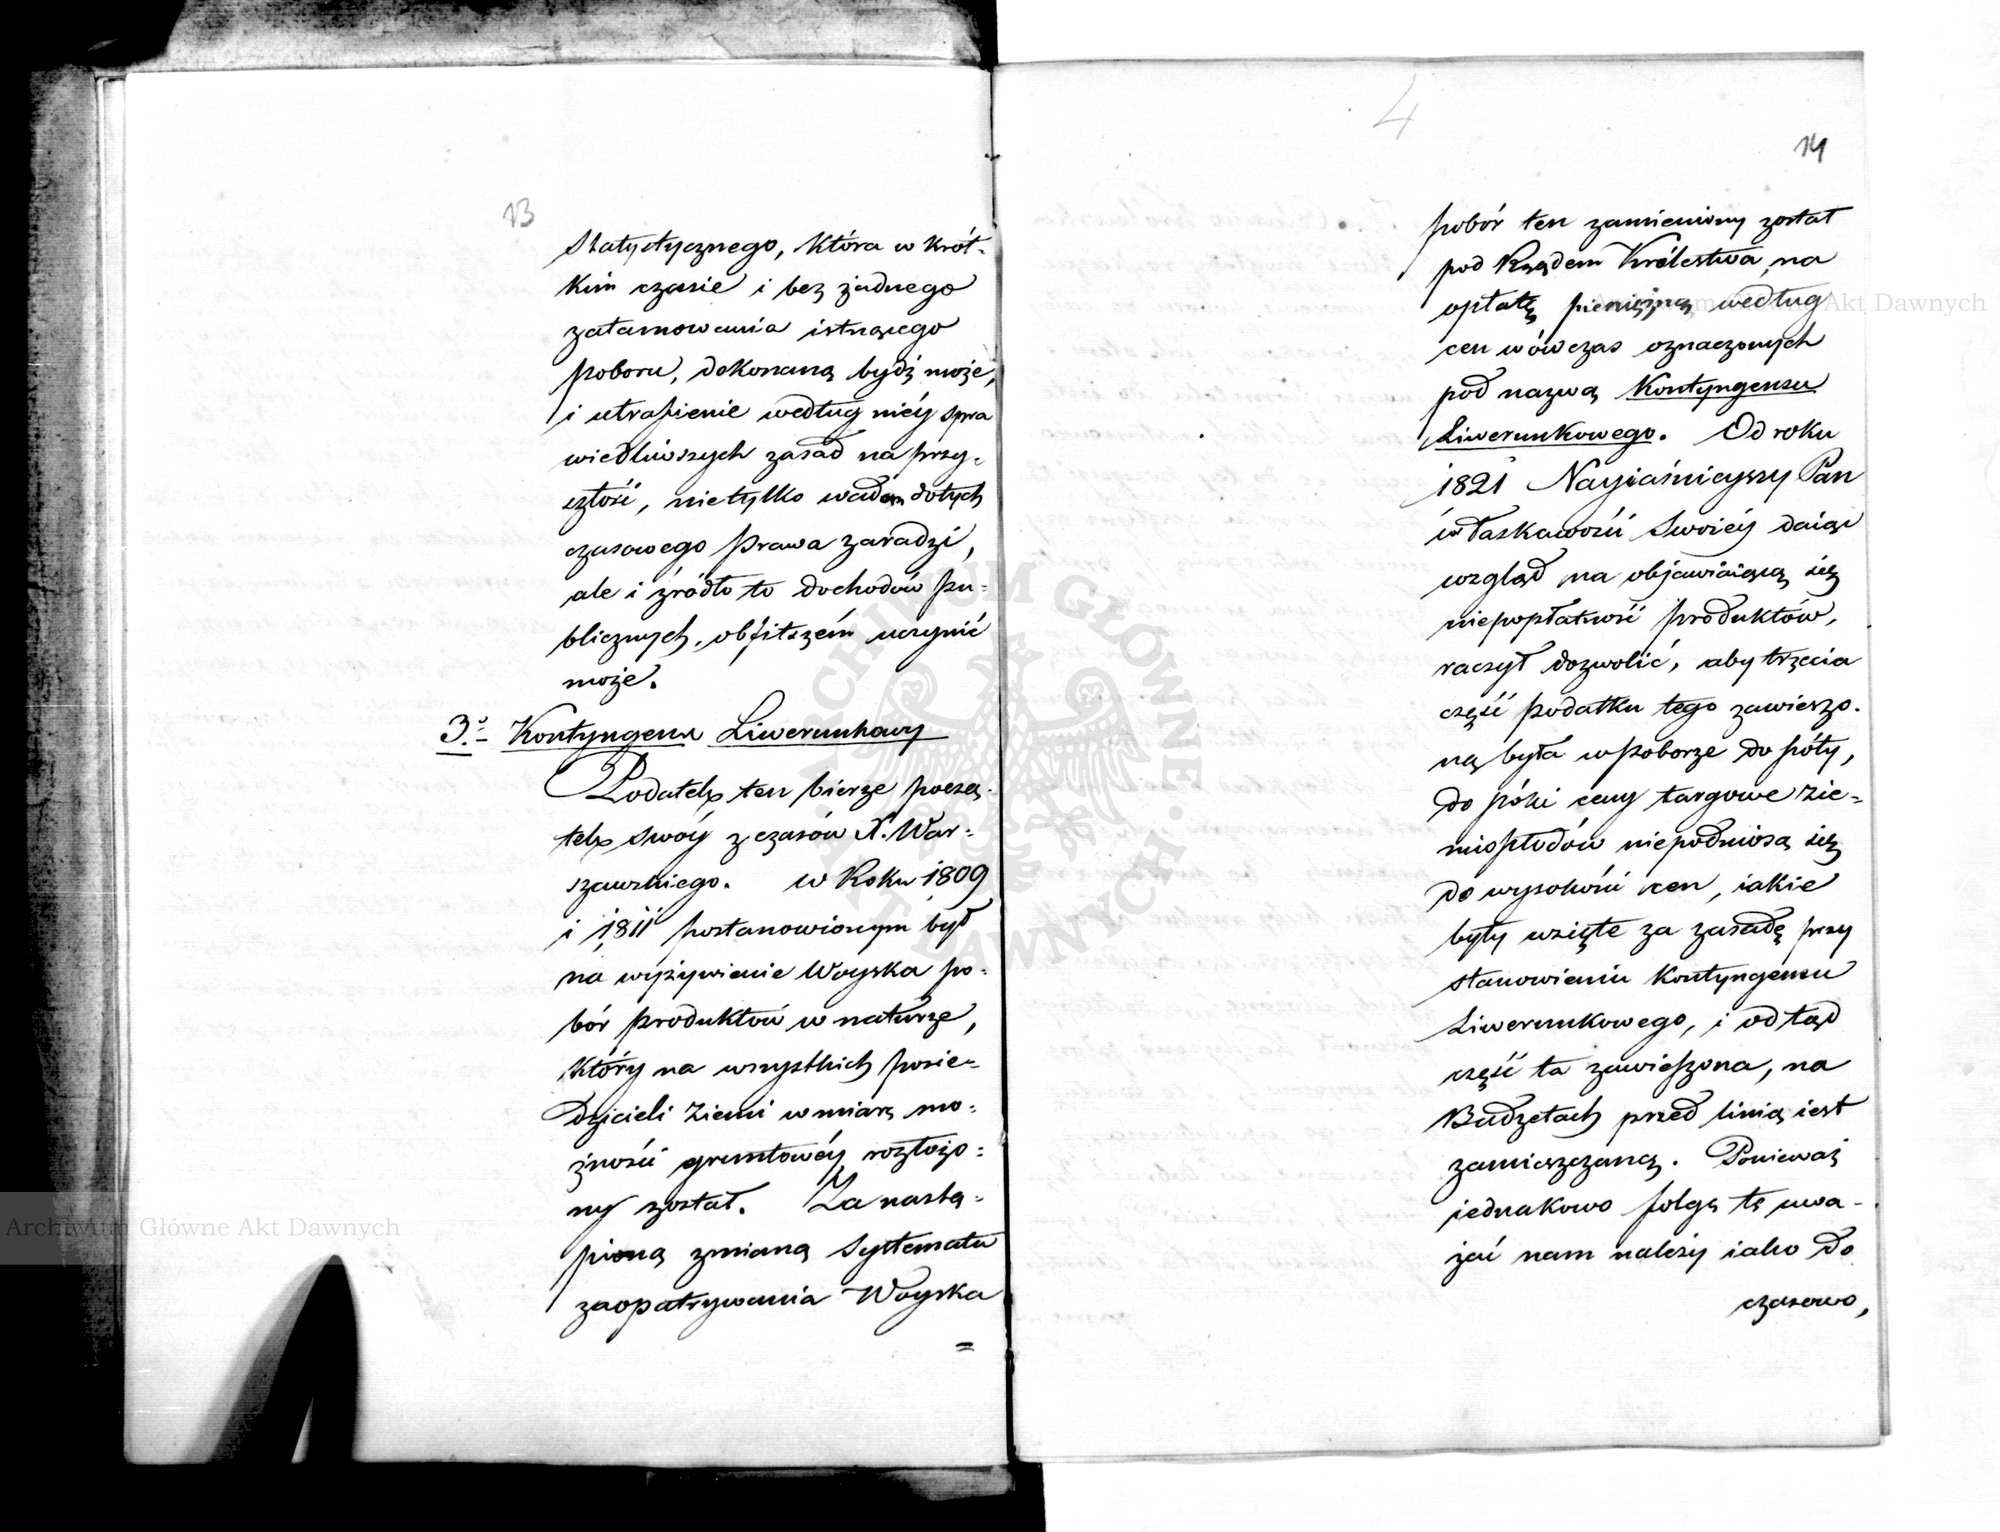 13
statystycznego, która w krót-
kim czasie i bez żadnego
zatamowania istnącego
poboru, dokonaną bydź może,
i utrafienie według niéy spra
wiedliwszych zasad na przy-
szłość, nietylko wadom dotych
czasowego prawa zaradzi,
ale i źródło to dochodów pu-
blicznych, obfitszém uczynić
może.
3.° Kontyngens Liwerunkowy
Podatek ten bierze począ-
tek swóy z czasów X. War-
szawskiego. w Roku 1809
i 1811 postanowionym był
na wyżywienie Woyska po-
bór produktów w naturze,
który na wszystkich posie-
dzicieli Ziemi w miarę mo-
żności gruntowéy rozłożo-
ny został. Za nastą-
pioną zmianą systematu
zaopatrywania Woyska
=
4
14
pobór ten zamieniony został
pod Rządem Królestwa, na
opłatę pieniężną według
cen wówczas oznaczonych
pod nazwą Kontyngensu
Liwerunkowego. Od roku
1821 Nayiaśnieyszy Pan
w łaskawości Swoiéy daiąc
wzgląd na objawiaiącą się
niepopłatność produktów,
raczył dozwolić, aby trzecia
część podatku tego zawieszo-
ną była w poborze do póty,
do póki ceny targowe zie-
miopłodów niepodniosą się
do wysokości cen, iakie
były wzięte za zasadę przy
stanowieniu Kontyngensu
Liwerunkowego, i odtąd
część ta zawieszona, na
Budżetach przed linią iest
zamieszczaną. Ponieważ
iednakowo folgę tę uwa-
żać nam należy iako do
czasowo,
Archiwum Główne Akt Dawnych
Archiwum Główne Akt Dawnych
ARCHIWUM GŁÓWNE
AKT DAWNYCH